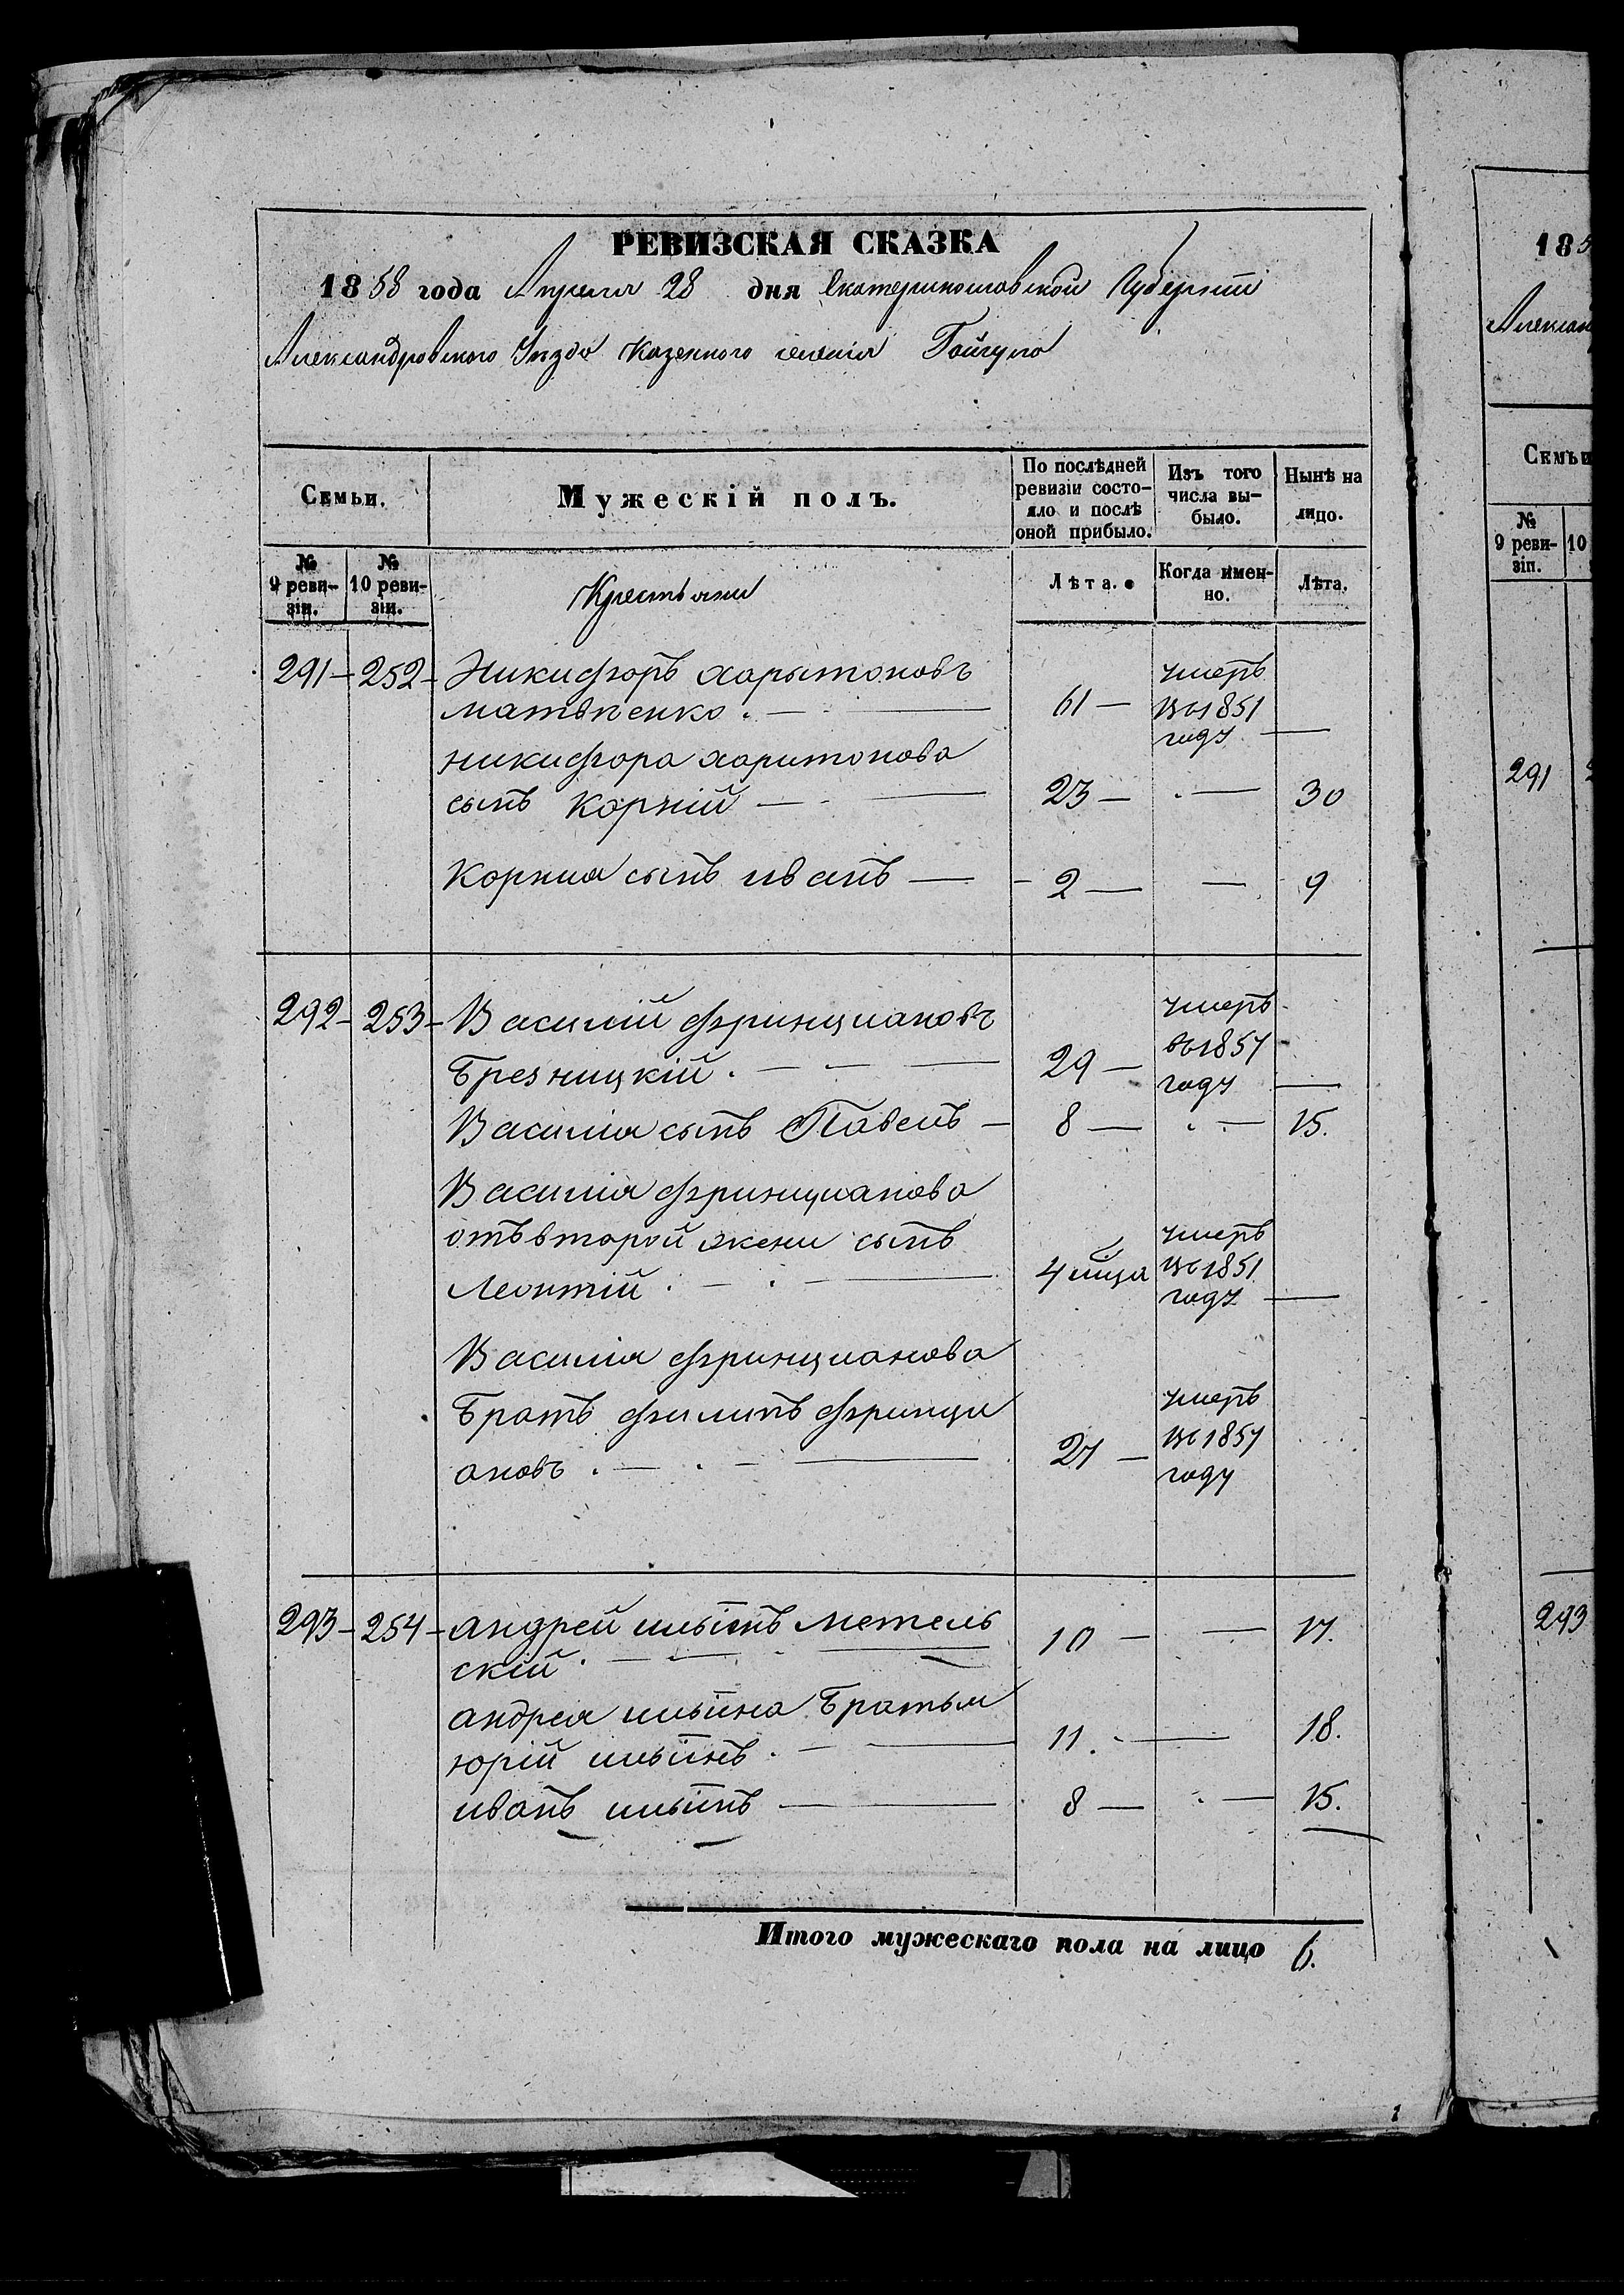 РЕВИЗСКАЯ СКАЗКА
1858 года Апреля 28 дня Екатеринославской Губернии
Александровского Уезда казенного селенія Гайчула
Семьи.
Мужескій полъ.
По послѣдней ревизіи состо-
яло и послѣ оной прибыло.
Изъ того числа вы-
было.
Нынѣ на лицо.
№ 9 реви-
зіи.
№ 10 реви-
зіи.
Крестьяне
Лѣта.
Когда имен-
но.
Лѣта.
291 — 252 — Никифоръ харытоновъ
матвѣенко. — 61 — умеръ въ 1851 году —
никифора харитонова
сынъ Корній — 23 — — 30
Корния сынъ иванъ — 2 — — 9
292 — 253 — Василій фринциановъ
Брезницкій. — 29 — умеръ въ 1857 году —
Василія сынъ Павелъ — 8 — — 15.
Василія фринцианова
отъ второй жени сынъ
Леонтій. — 4 мца умеръ въ 1851 году —
Василія фринцианова
Братъ филипъ фринци
ановъ. — 27 — умеръ въ 1857 году
293 — 254 — андрей ильинъ метель
скій. — 10 — — 17.
андрея ильина Братья
юрій ильинъ. — 11. — 18.
иванъ ильинъ — 8 — — 15.
Итого мужескаго пола на лицо 6.
185
Александ
Семьи
№ 9 реви-
зіи.
10
291
293